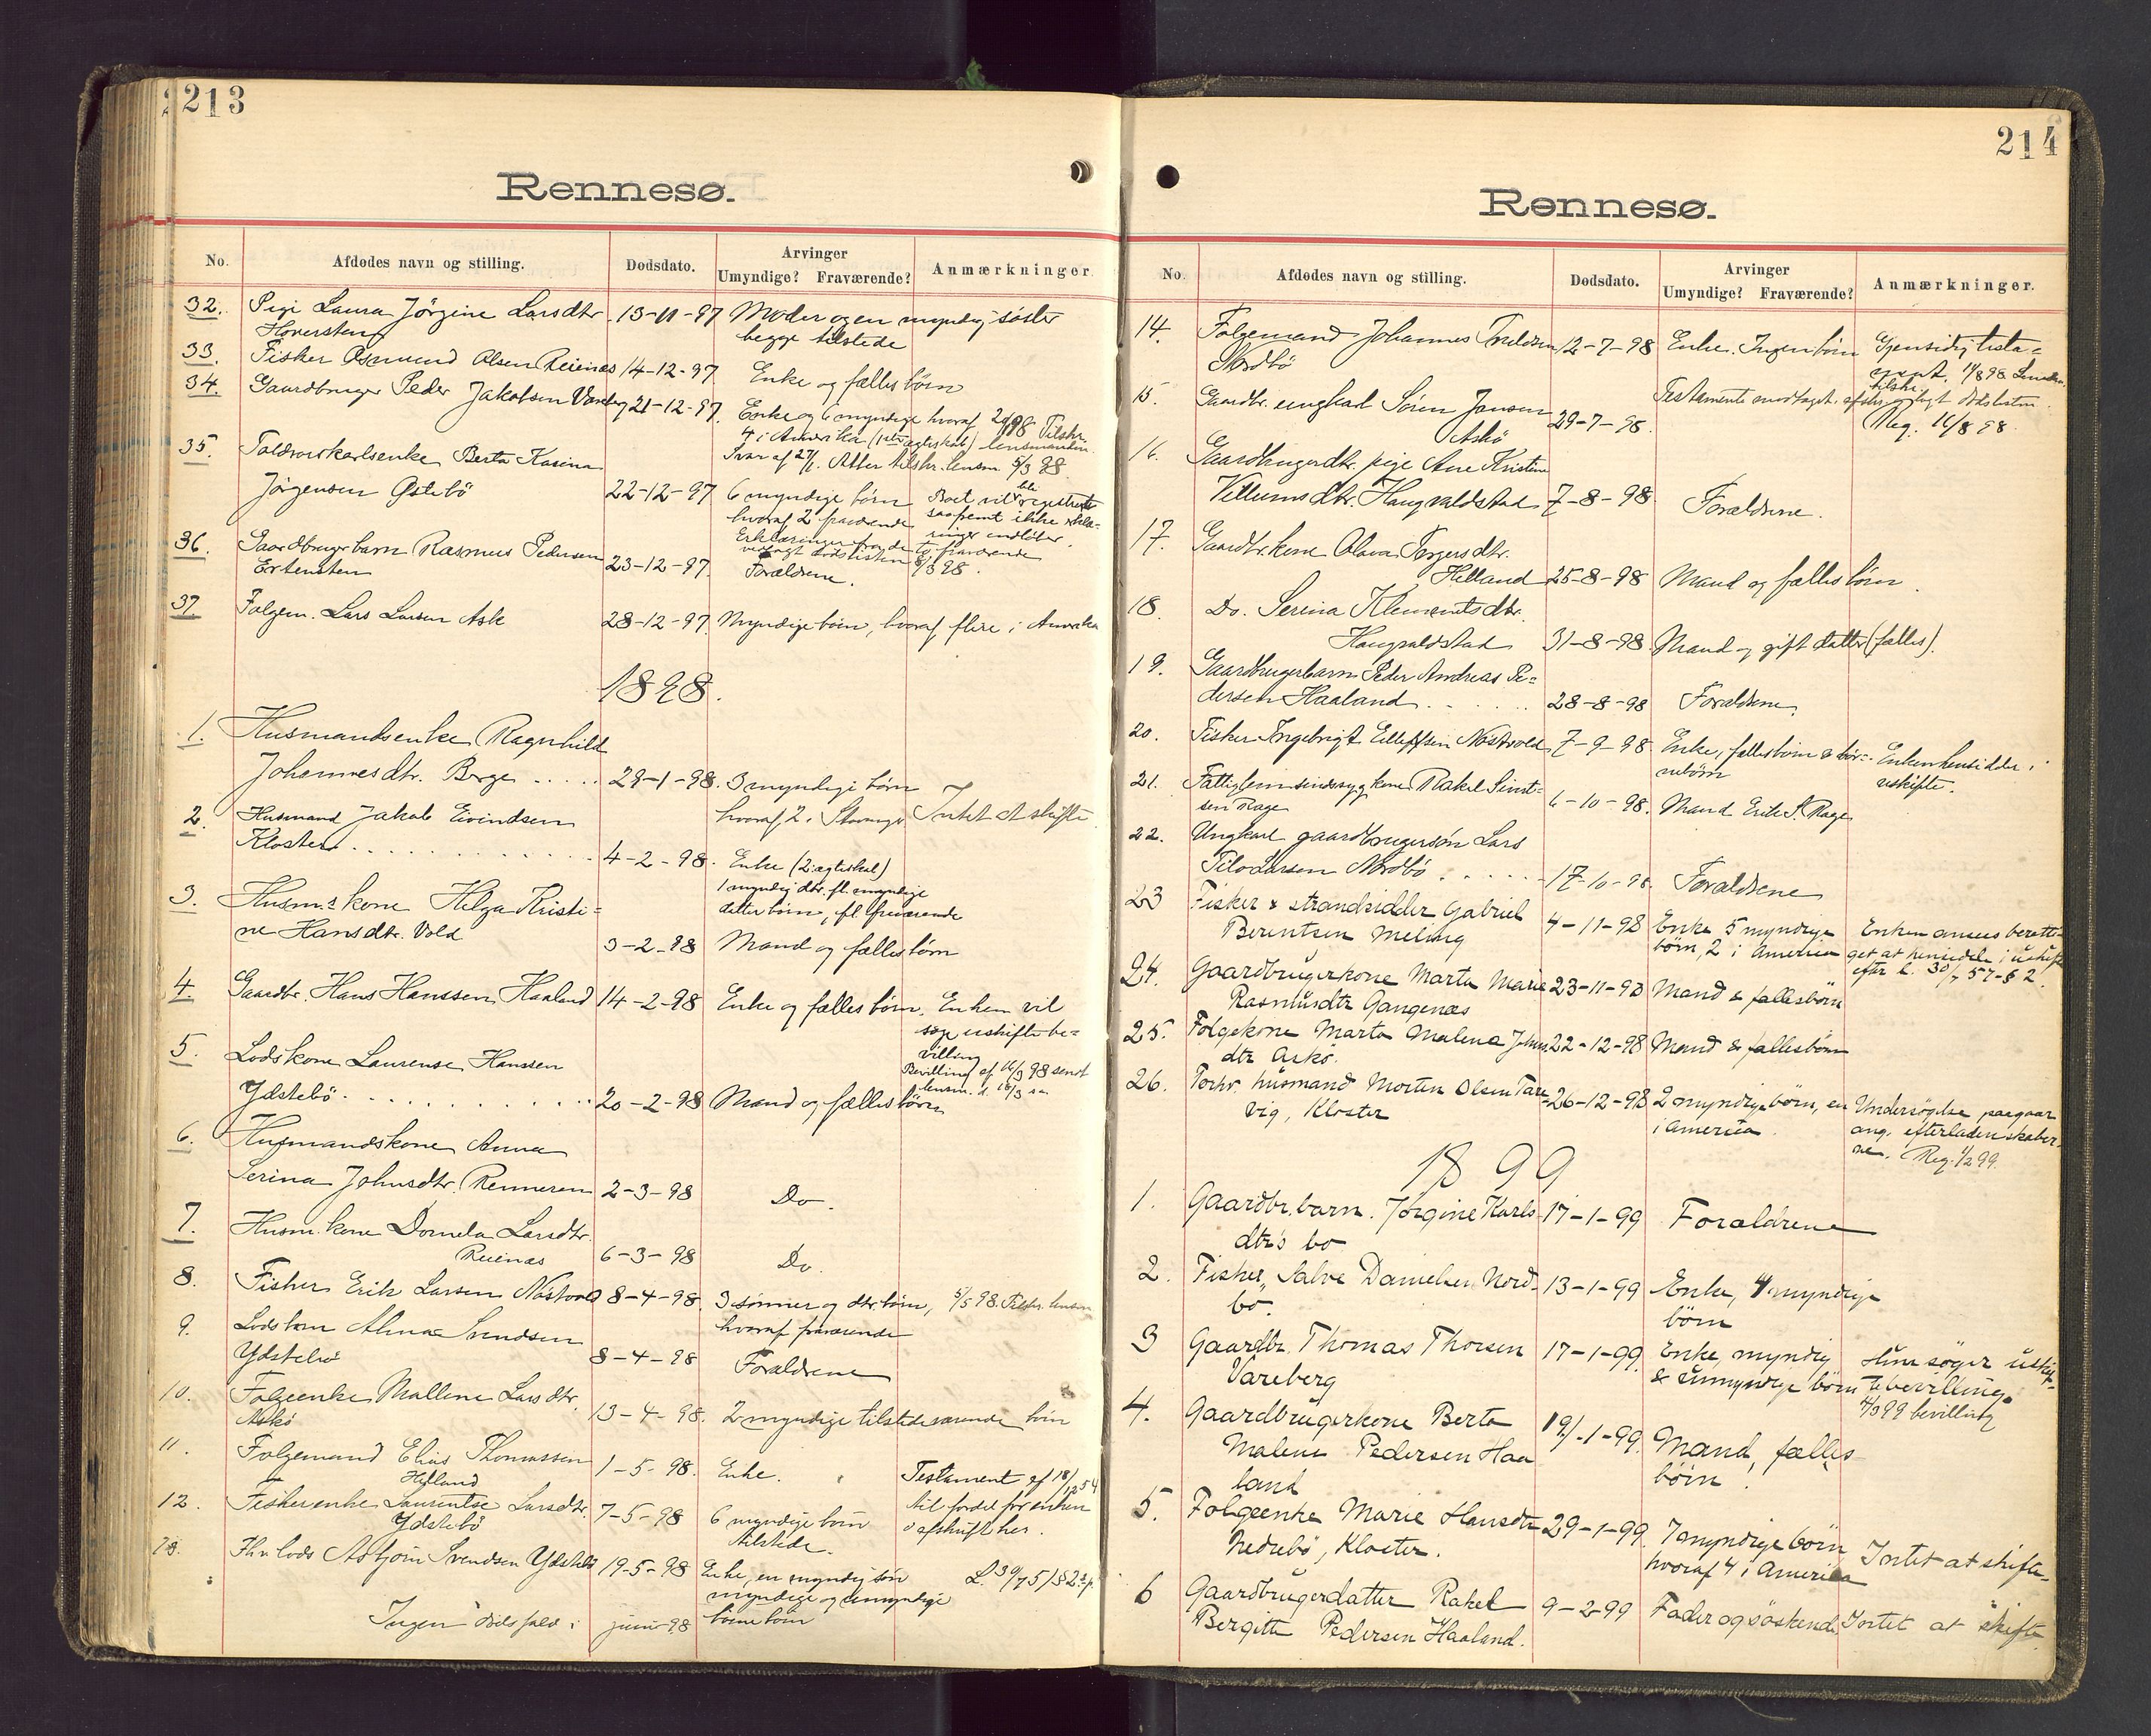 213
Rennesø.
No. Afdødes navn og stilling. Dødsdato. Arvinger Umyndige? Fraværende? Anmærkninger.
32. Pige Laura Jörgine Larsdtr. 13-11-97 Moder og en myndig söster
Hoversten begge tilstede
33. Fisker Asmund Olsen Reienæs 14-12-97 Enke og fælles börn
34. Gaardbruger Peder Jakobsen Vareberg 21-12-97. Enke og 6 myndige hvoraf
4 i Amerika (1ste ægteskab) lensmanden.
Svar af 27/1. Atter tilskr. lensm. 5/3 98
35. Toldroerskarlsenke Berta Karina
Jörgensen Östebö 22-12-97 6 myndige börn Boet vil bli registreret
hvoraf 2 fraværende saafremt ikke erklæ-
Erklæringer fra de to fraværende ringer indlöber.
vedlagt dödslisten 8/3 98.
36. Gaardbrugerbarn Rasmus Pedersen
Ertensten 23-12-97. Forældrene.
37. Folgem. Lars Larsen Ask 28-12-97. Myndige börn, hvoraf flere i Amerika
1898.
1. Husmandsenke Ragnhild
Johannesdtr. Berge ..... 29-1-98. 3 myndige börn
hvoraf 2 i Stavanger Intet at skifte
2. Husmand Jakob Eivindsen
Kloster ........... 4-2-98. Enke (2 ægteskab)
1 myndig dtr. fl. myndige
datterbörn, fl fraværende
3. Husm.s kone Helga Kristi=
ne Hansdtr. Vold 3-2-98 Mand og fælles börn
4. Gaardbr. Hans Hanssen Haaland 14-2-98 Enke og fælles börn. Enken vil
söge uskiftebe=
villing
Bevilling af 16/3 98 sendt
lensm. d. 18/3 s.a.
5. Lodskone Laurense Hanssen
Ydstebö.......... 20-2-98 Mand og fælles börn
6. Husmandskone Anna
Serina Johnsdtr. Renneren 2-3-98 Do.
7. Husm. kone Dornela Larsdtr.
Reienæs 6-3-98 Do.
8. Fisker Erik Larsen Nåstvold 8-4-98. 3 sönner og dtr. börn, 5/5 98. Tilskr. lensm
hvoraf fraværende
9. Lodsbarn Alma Svendsen
Ydstebö 8-4-98 Forældrene
10. Folgeenke Mallene Larsdtr.
Askö 13-4-98. 2 myndige tilstedeværende börn
11. Folgemand Elias Thomassen
Helland 1-5-98. Enke. Testament af 18/12 54
til fordel for enken
i afskrift her.
12. Fiskerenke Laurentse Larsdtr.
Ydstebö 7-5-98 6 myndige börn
tilstede.
13. Fhv. lods Asbjörn Svendsen Ydstebö 19-5-98 Enke, en myndig sön L. 30/7 51 § 2
myndige og umyndige
börnebörn
Ingen dödsfald i juni 98
214
Rennesø.
No. Afdødes navn og stilling. Dødsdato. Arvinger Umyndige? Fraværende? Anmærkninger.
14. Folgemand Johannes Trulsen 12-7-98 Enke. Ingen börn Gjensidig testa=
Nordbö ment. 11/8 98 Lensm. tilskr.
15. Gaardbr. ungkarl Sören Jansen Testamente modtaget
Askö 29-7-98. Reg. 16/8 98.
16. Gaardbrugerdtr. pige Ane Kristine
Villumsdtr. Haugvaldstad 7-8-98 Forældrene.
17. Gaardbr. kone Olava Torgersdtr.
Helland 25-8-98 Mand og fælles börn.
18. Do. Serina Klementsdtr.
Haugvaldstad 31-8-98 Mand og gift datter (fælles).
19. Gaardbrugerbarn Peder Andreas Pe=
dersen Haaland ...... 28-8-98 Forældrene.
20. Fisker Ingebrigt Ellefsen Nåstvold 7-9-98 Enke, fælles börn & bör= Enken hensidder i
nebörn uskifte.
21. Fattiglem sindssyg kone Rakel Simt-
sen Rage 6-10-98. Mand Erik S. Rage
22. Ungkarl gaardbrugersön Lars
Tilo Larsen Nordbö ..... 17-10-98. Forældrene
23 Fisker & strandsidder Gabriel 4-11-98 Enke 5 myndige Enken ansees beretti-
Berentsen Meling börn, 2 i Amerika get at hensidde i uskifte
efter L. 30/7 57-§ 2.
24. Gaardbrugerkone Marta Marie 23-11-98 Mand & fællesbörn
Rasmusdtr Gangenæs
25. Folgekone Marta Malena Johns 22-12-98 Mand & fællesbörn
dtr Askö.
26. Forhv. husmand Morten Olsen Tare 26-12-98 2 myndige börn, en Undersögelse paagaar
vig, Kloster i Amerika. ang. efterladenskaber
ne. Reg. 1/2 99.
1899
1. Gaardbr. barn. Jörgine Karls 17-1-99 Forældrene
dtr's bo
2. Fisker Salve Danielsen Nord- 13-1-99 Enke, 4 myndige
bö. börn
3 Gaardbr. Thomas Thorsen 17-1-99. Enke, myndig Hun söger uskif-
Vareberg & umyndige börn tebevilling.
4/3 99 bevilling
4. Gaardbrugerkone Berta 19-1-99. Mand, fælles
Malene Pedersen Haa börn
land
5. Folgeenke Marie Hansdtr 29-1-99. 7 myndige börn Intet at skifte.
Nedrebö, Kloster. hvoraf 4 i Amerika
6 Gaardbrugerdatter Rakel 9-2-99 Fader og söskende. Intet at skifte
Bergitte Pedersen Haaland.